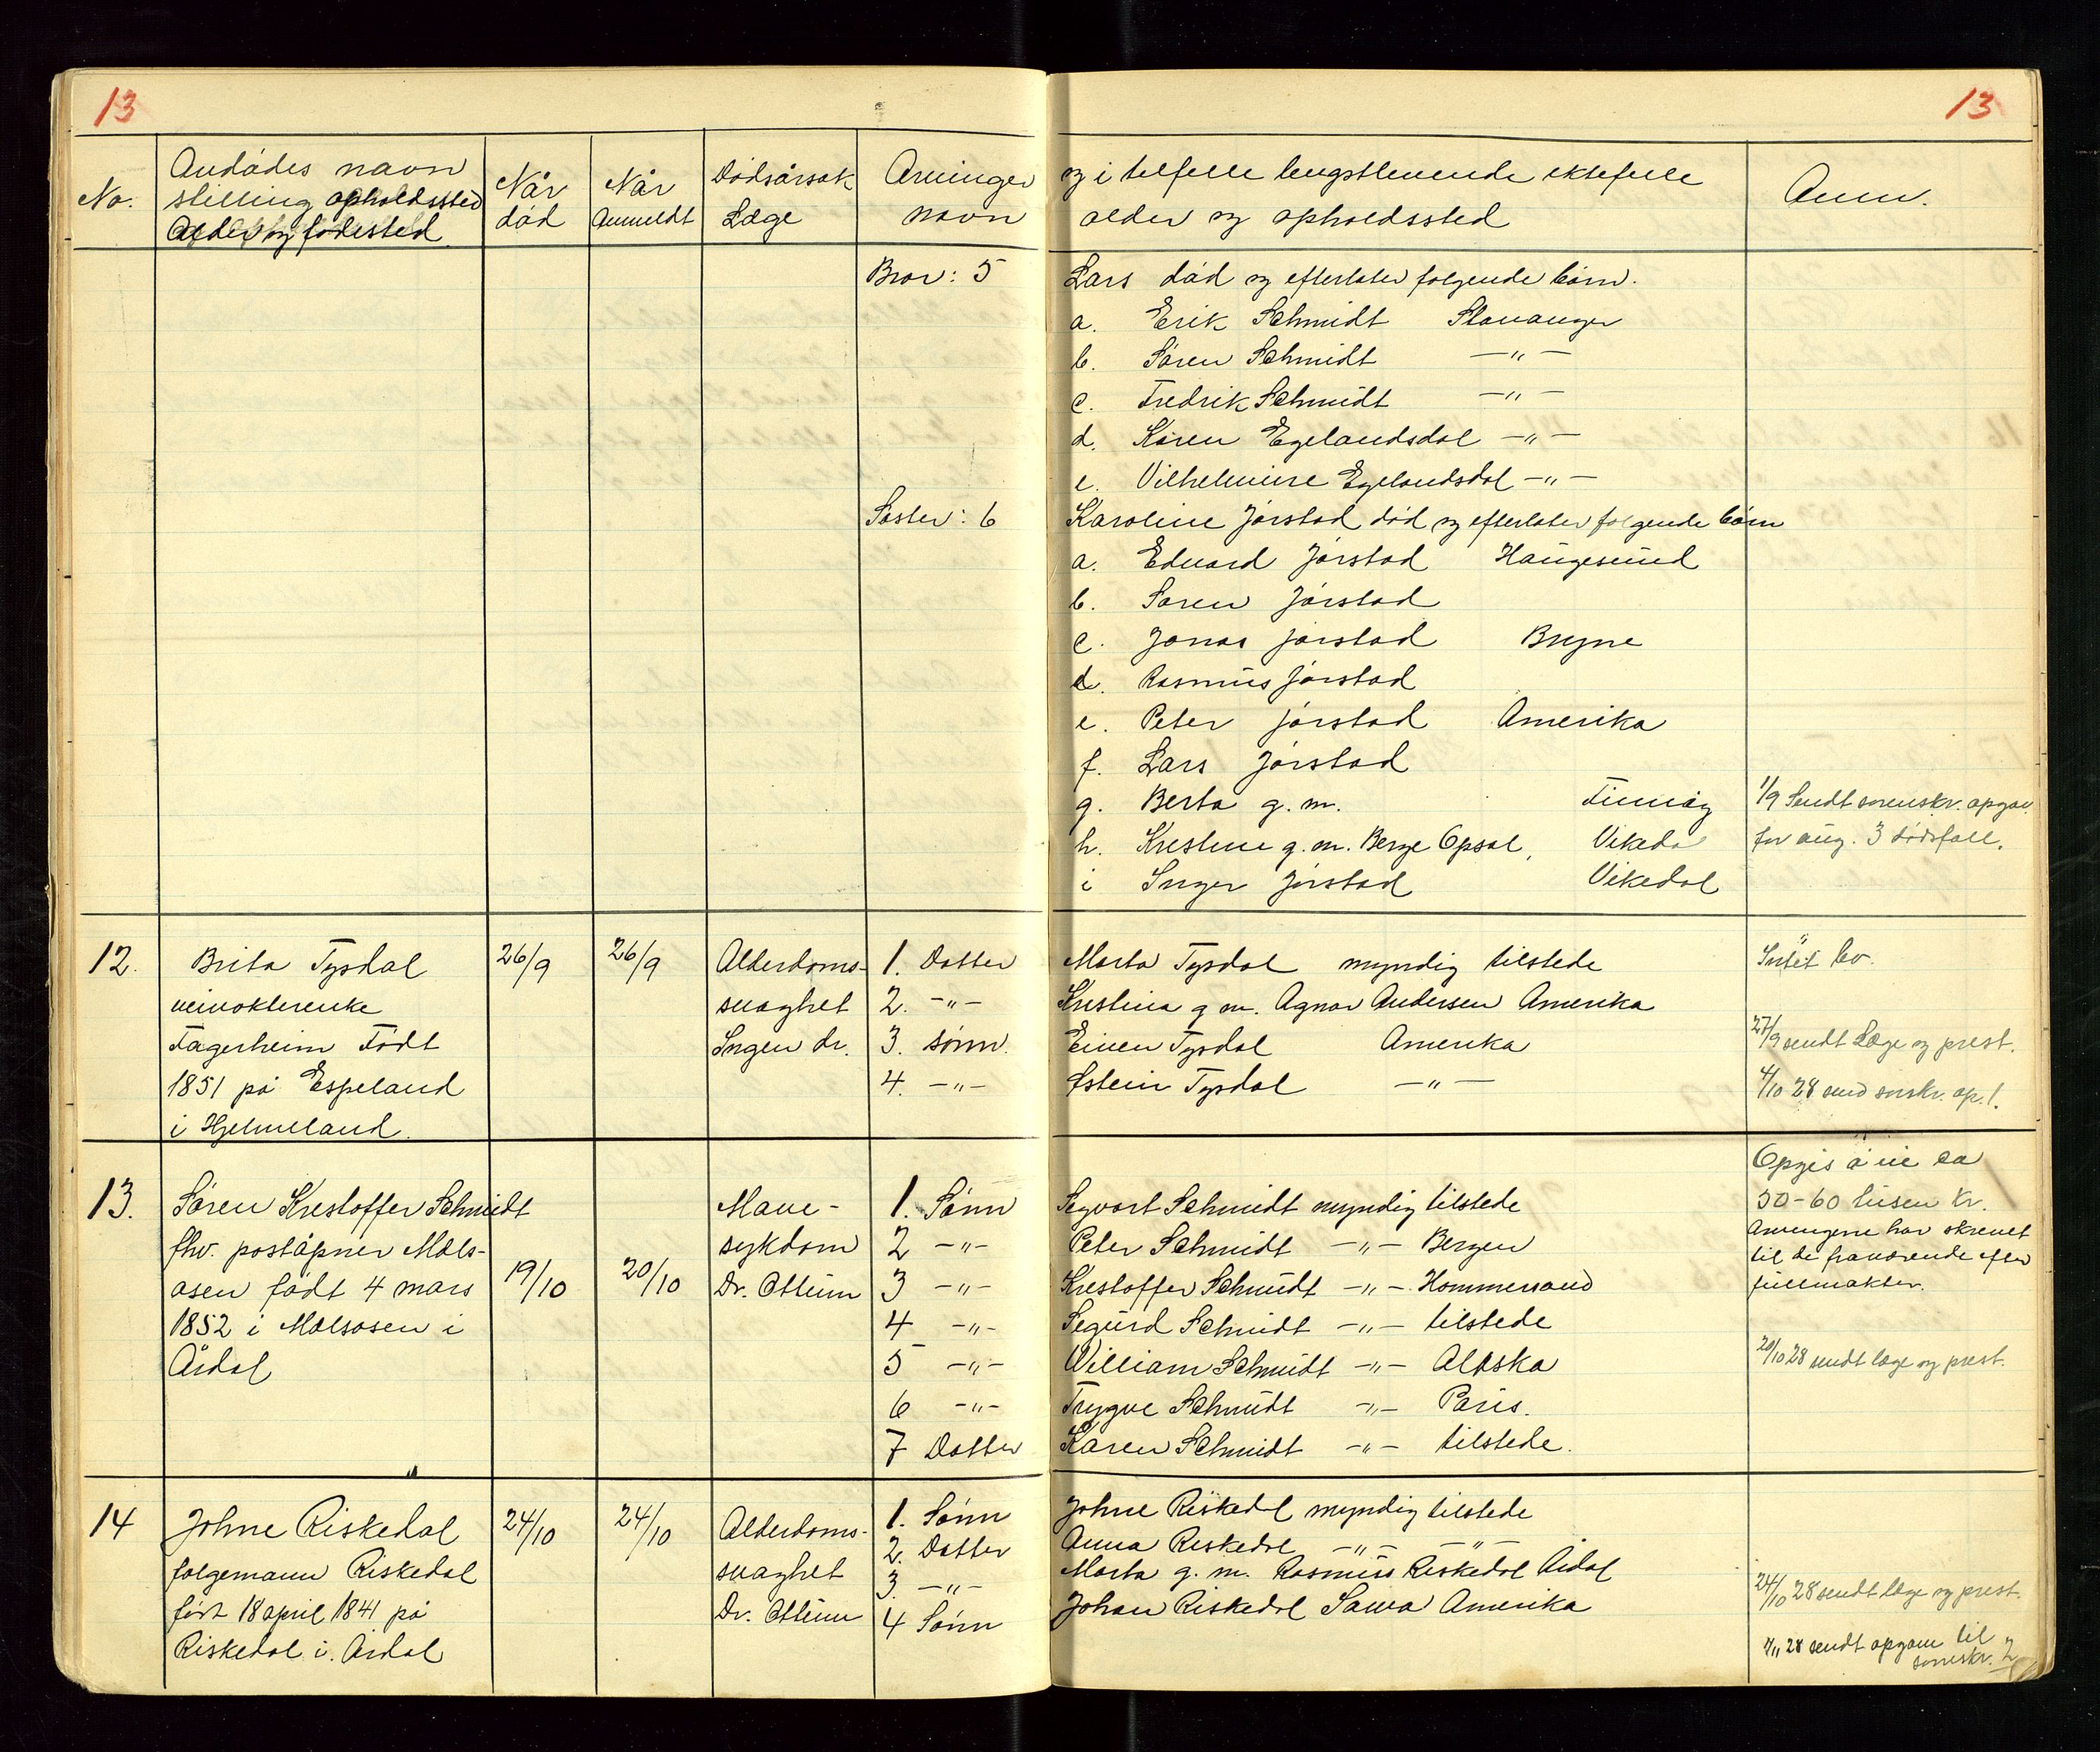 13
13
No.
Avdødes navn
stilling opholdssted
Alder og fødested
Når
død
Når
Anmeldt
Dødsårsak
Læge
Arvinger
navn
og i tilfelle lengstlevende ektefelle
alder og opholdssted
Anm.
Bror: 5
Lars død og efterlater følgende børn.
a. Erik Schmidt Stavanger
b. Søren Schmidt —〃—
c. Fredrik Schmidt —〃—
d. Karen Egelandsdal —〃—
e. Vilhelmine Egelandsdal —〃—
Søster: 6
Karoline Jørstad død og efterlater følgende børn
a. Edvard Jørstad Haugesund
b. Søren Jørstad
c. Jonas Jørstad Bryne
d. Rasmus Jørstad
e. Peter Jørstad Amerika
f. Lars Jørstad
g. Berta g. m. Finnøy
h. Kristine g. m. Berge Opsal, Vikeda
i Inger Jørstad Vikedal
1/9 Sendt sorenskr. opgav.
for aug. 3 dødsfall.
12.
Brita Tysdal
veivokterenke
Fagerheim Født
1851 på Espeland
i Hjelmeland.
26/9
26/9
Alderdoms-
svaghet
Ingen dr.
1. Datter
2. —〃—
3. sønn.
4. —〃—
Marta Tysdal myndig tilstede
Kristina g m. Agnar Andersen Amerika
Einen Tysdal Amerika
Østein Tysdal —〃—
Intet bo.
27/9 sendt Læge og prest.
4/10 28 send sorskr. op. 1.
13.
Søren Kristoffer Schmidt
fhv. poståpner Mæls-
osen født 4 mars
1852 i Mælsosen i
Årdal
19/10
20/10
Mave-
sykdom
Dr. Ottum
1. Sønn
2 —〃—
3 —〃—
4 —〃—
5 —〃—
6 —〃—
7 Datter
Sigvart Schmidt myndig tilstede
Peter Schmidt —〃— Bergen
Kristoffer Schmidt —〃— Hommersand
Sigurd Schmidt —〃— tilstede
William Schmidt —〃— Alaska
Trygve Schmidt —〃— Paris.
Karen Schmidt —〃— tilstede.
Opgis å eie ca
50-60 tusen kr.
Arvingerne har skrevet
til de fraværende efter
fullmakter.
20/10 28 sendt læge og prest.
14
Johne Riskedal
følgemann Riskedal
født 18 april 1841 på
Riskedal i Årdal
24/10
24/10
Alderdoms-
svaghet
Dr. Ottum
1. Sønn
2. Datter
3. —〃—
4 Sønn
Johne Riskedal myndig tilstede
Anna Riskedal —〃— —〃—
Marta g. m. Rasmus Riskedal Årdal
Johan Riskedal Iowa Amerika
24/10 28 sendt læge og prest.
1/11 28 sendt opgave til
sorenskr. 2